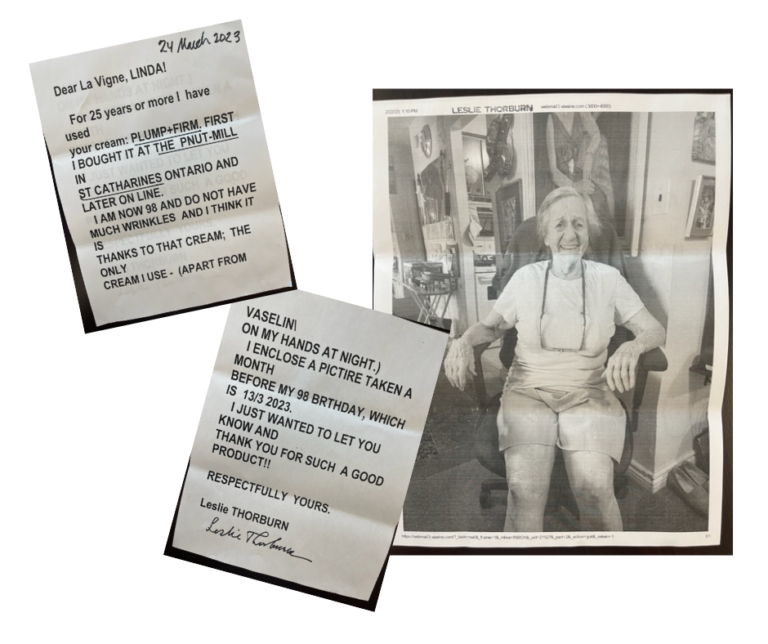 24 March 2023
Dear La Vigne, LINDA!
For 25 years or more I have
used
your cream: PLUMP+FIRM. FIRST
I BOUGHT IT AT THE PNUT-MILL
IN
ST CATHARINES ONTARIO AND
LATER ON LINE.
I AM NOW 98 AND DO NOT HAVE
MUCH WRINKLES AND I THINK IT
IS
THANKS TO THAT CREAM; THE
ONLY
CREAM I USE - (APART FROM
VASELIN
ON MY HANDS AT NIGHT.)
I ENCLOSE A PICTIRE TAKEN A
MONTH
BEFORE MY 98 BRTHDAY, WHICH
IS 13/3 2023.
I JUST WANTED TO LET YOU
KNOW AND
THANK YOU FOR SUCH A GOOD
PRODUCT!!
RESPECTFULLY YOURS.
Leslie THORBURN
Leslie Thorburn
LESLIE THORBURN